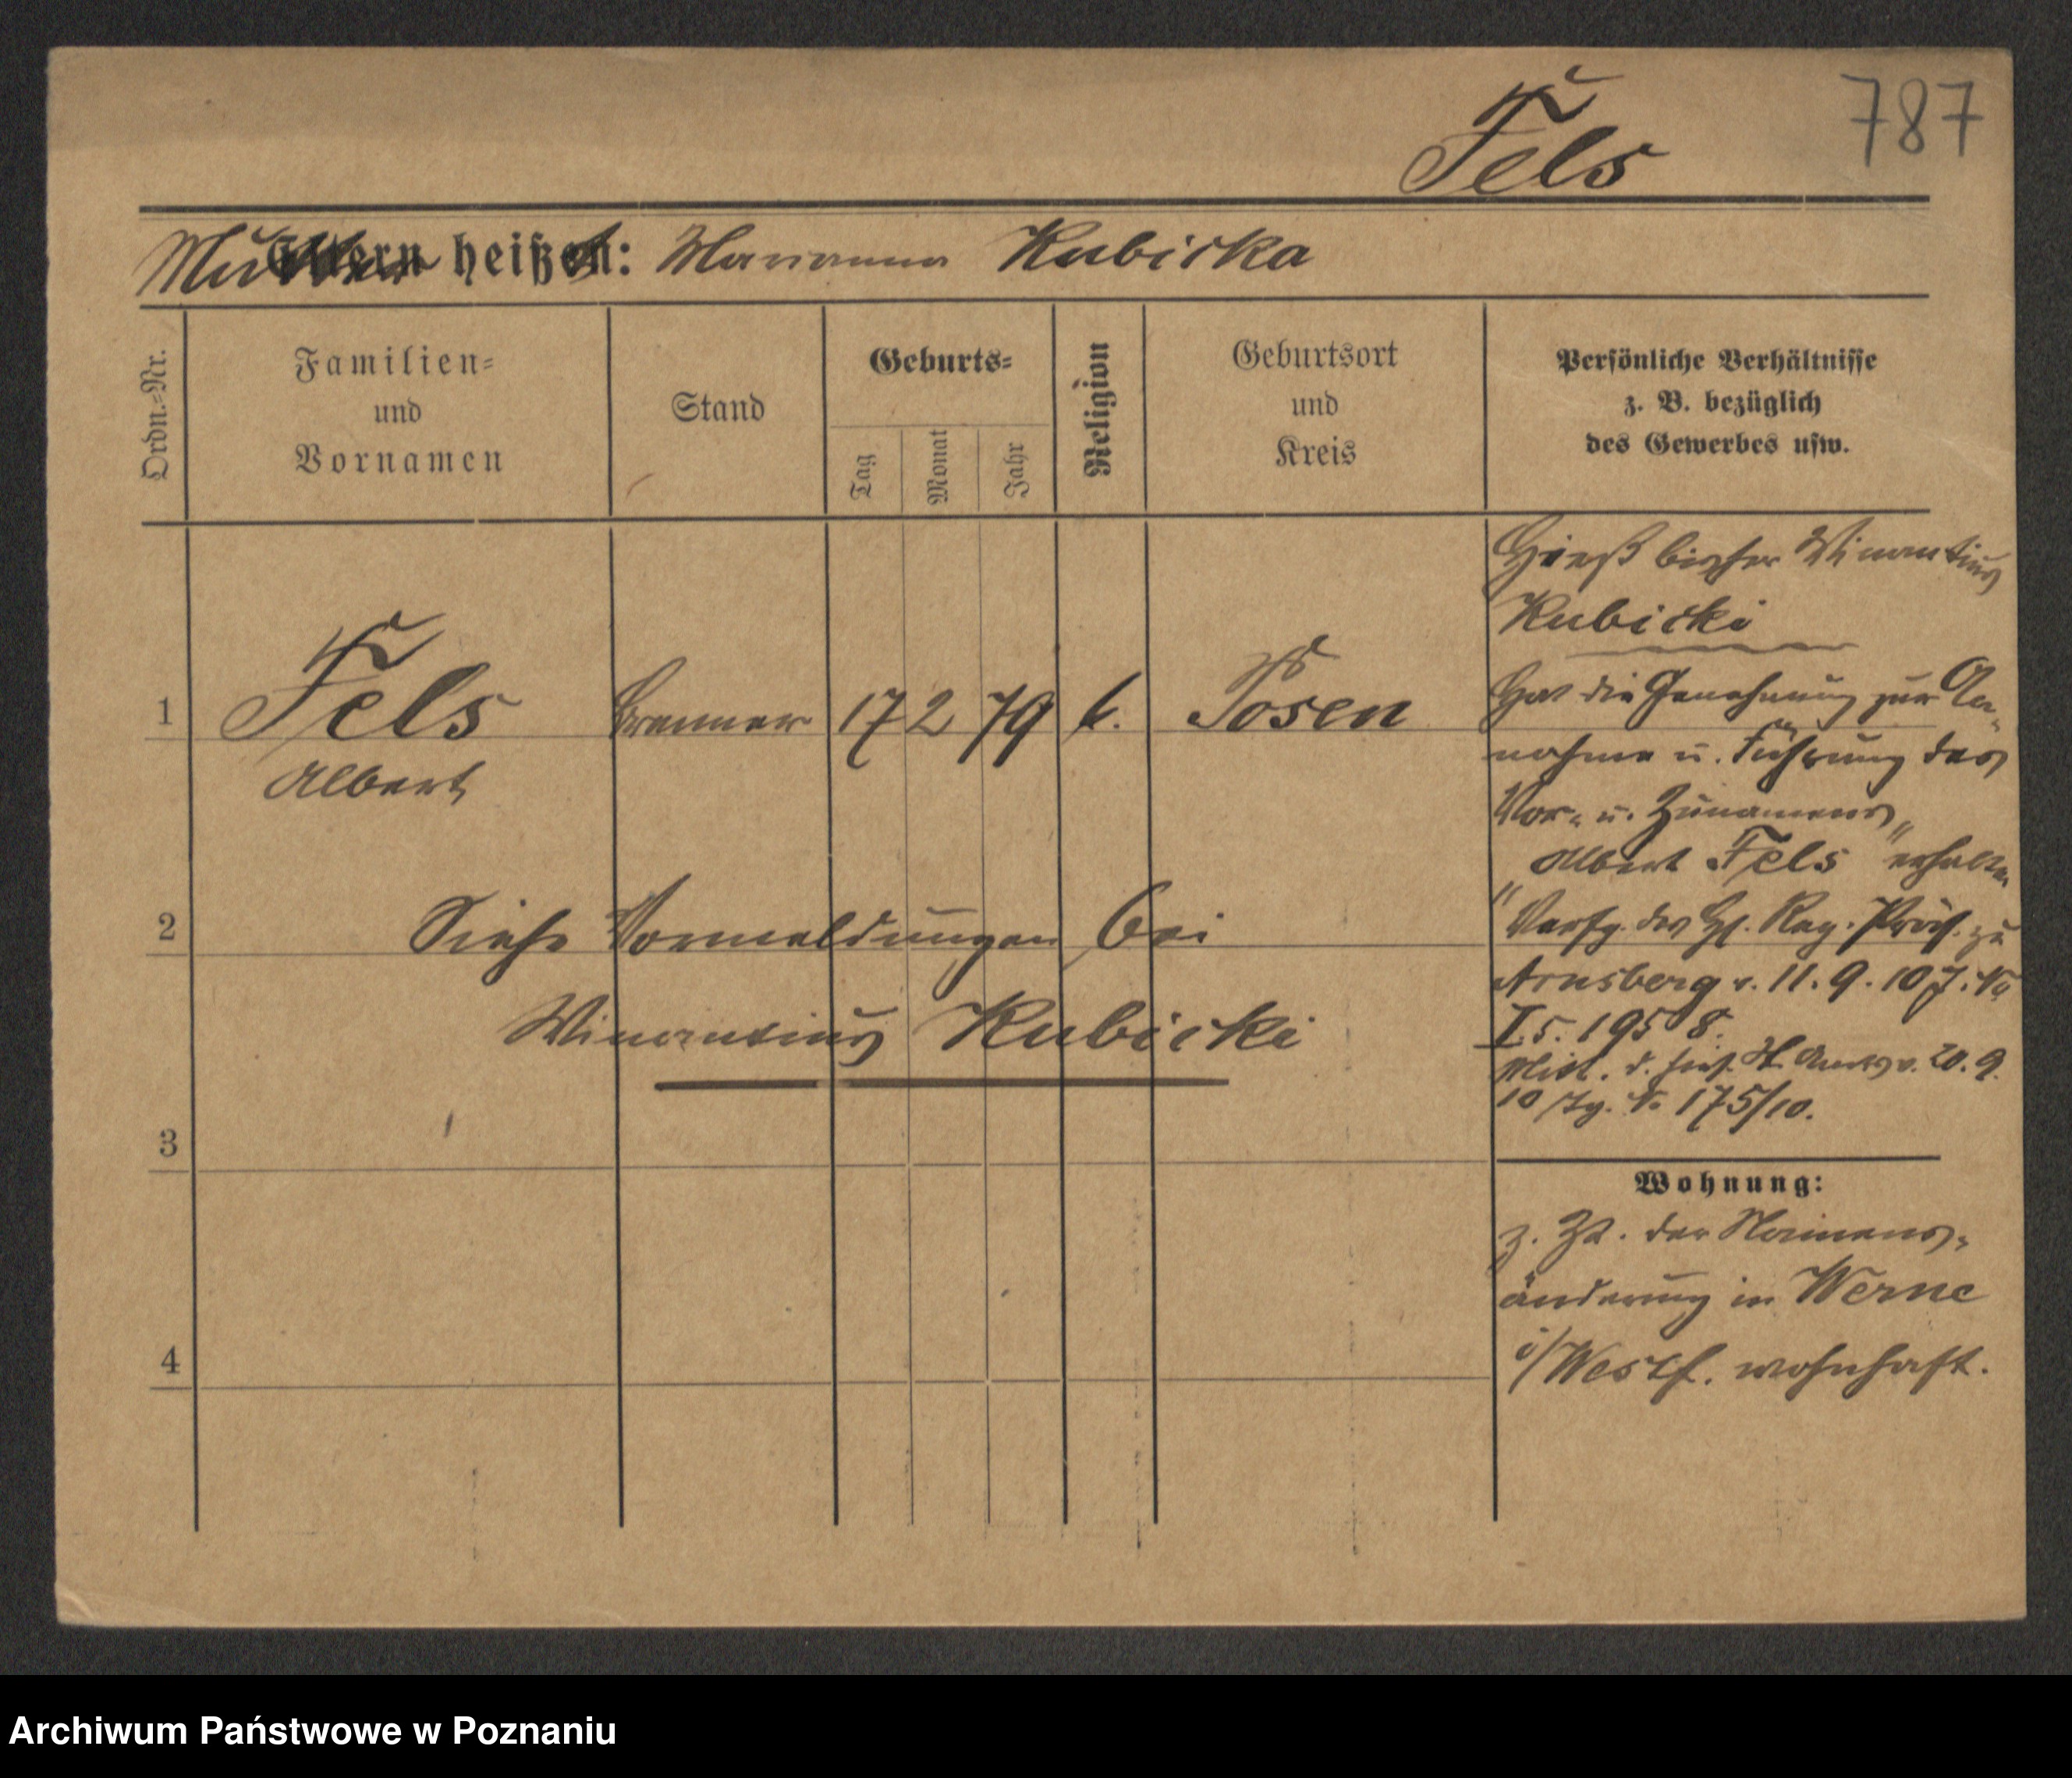 787
Fels
Mutter heißt: Marianna Kubicka
Ordn.=Nr.
Familien=
und
Vornamen
Stand
Geburts=
Tag
Monat
Jahr
Religion
Geburtsort
und
Kreis
Persönliche Verhältnisse
z. B. bezüglich
des Gewerbes usw.
1
Fels
Albert
Brenner
17
2
79
k.
Posen
2
Siehe Vormeldungen bei
Winantius Kubicki
3
4
Hieß bisher Winantius
Kubicki
Hat die Genehmung zur An-
nahme u. Führung des
Vor- u. Zunamens
„Albert Fels“ erhalten
Verfg. des H. Reg. Präs. zu
Arnsberg v. 11. 9. 10 J. No
I. 5. 1958.
Mitt. d. v. 20. 9.
10 No 175/10.
Wohnung:
z. Zt. der Namens-
änderung in Werne
i/Westf. wohnhaft.
Archiwum Państwowe w Poznaniu